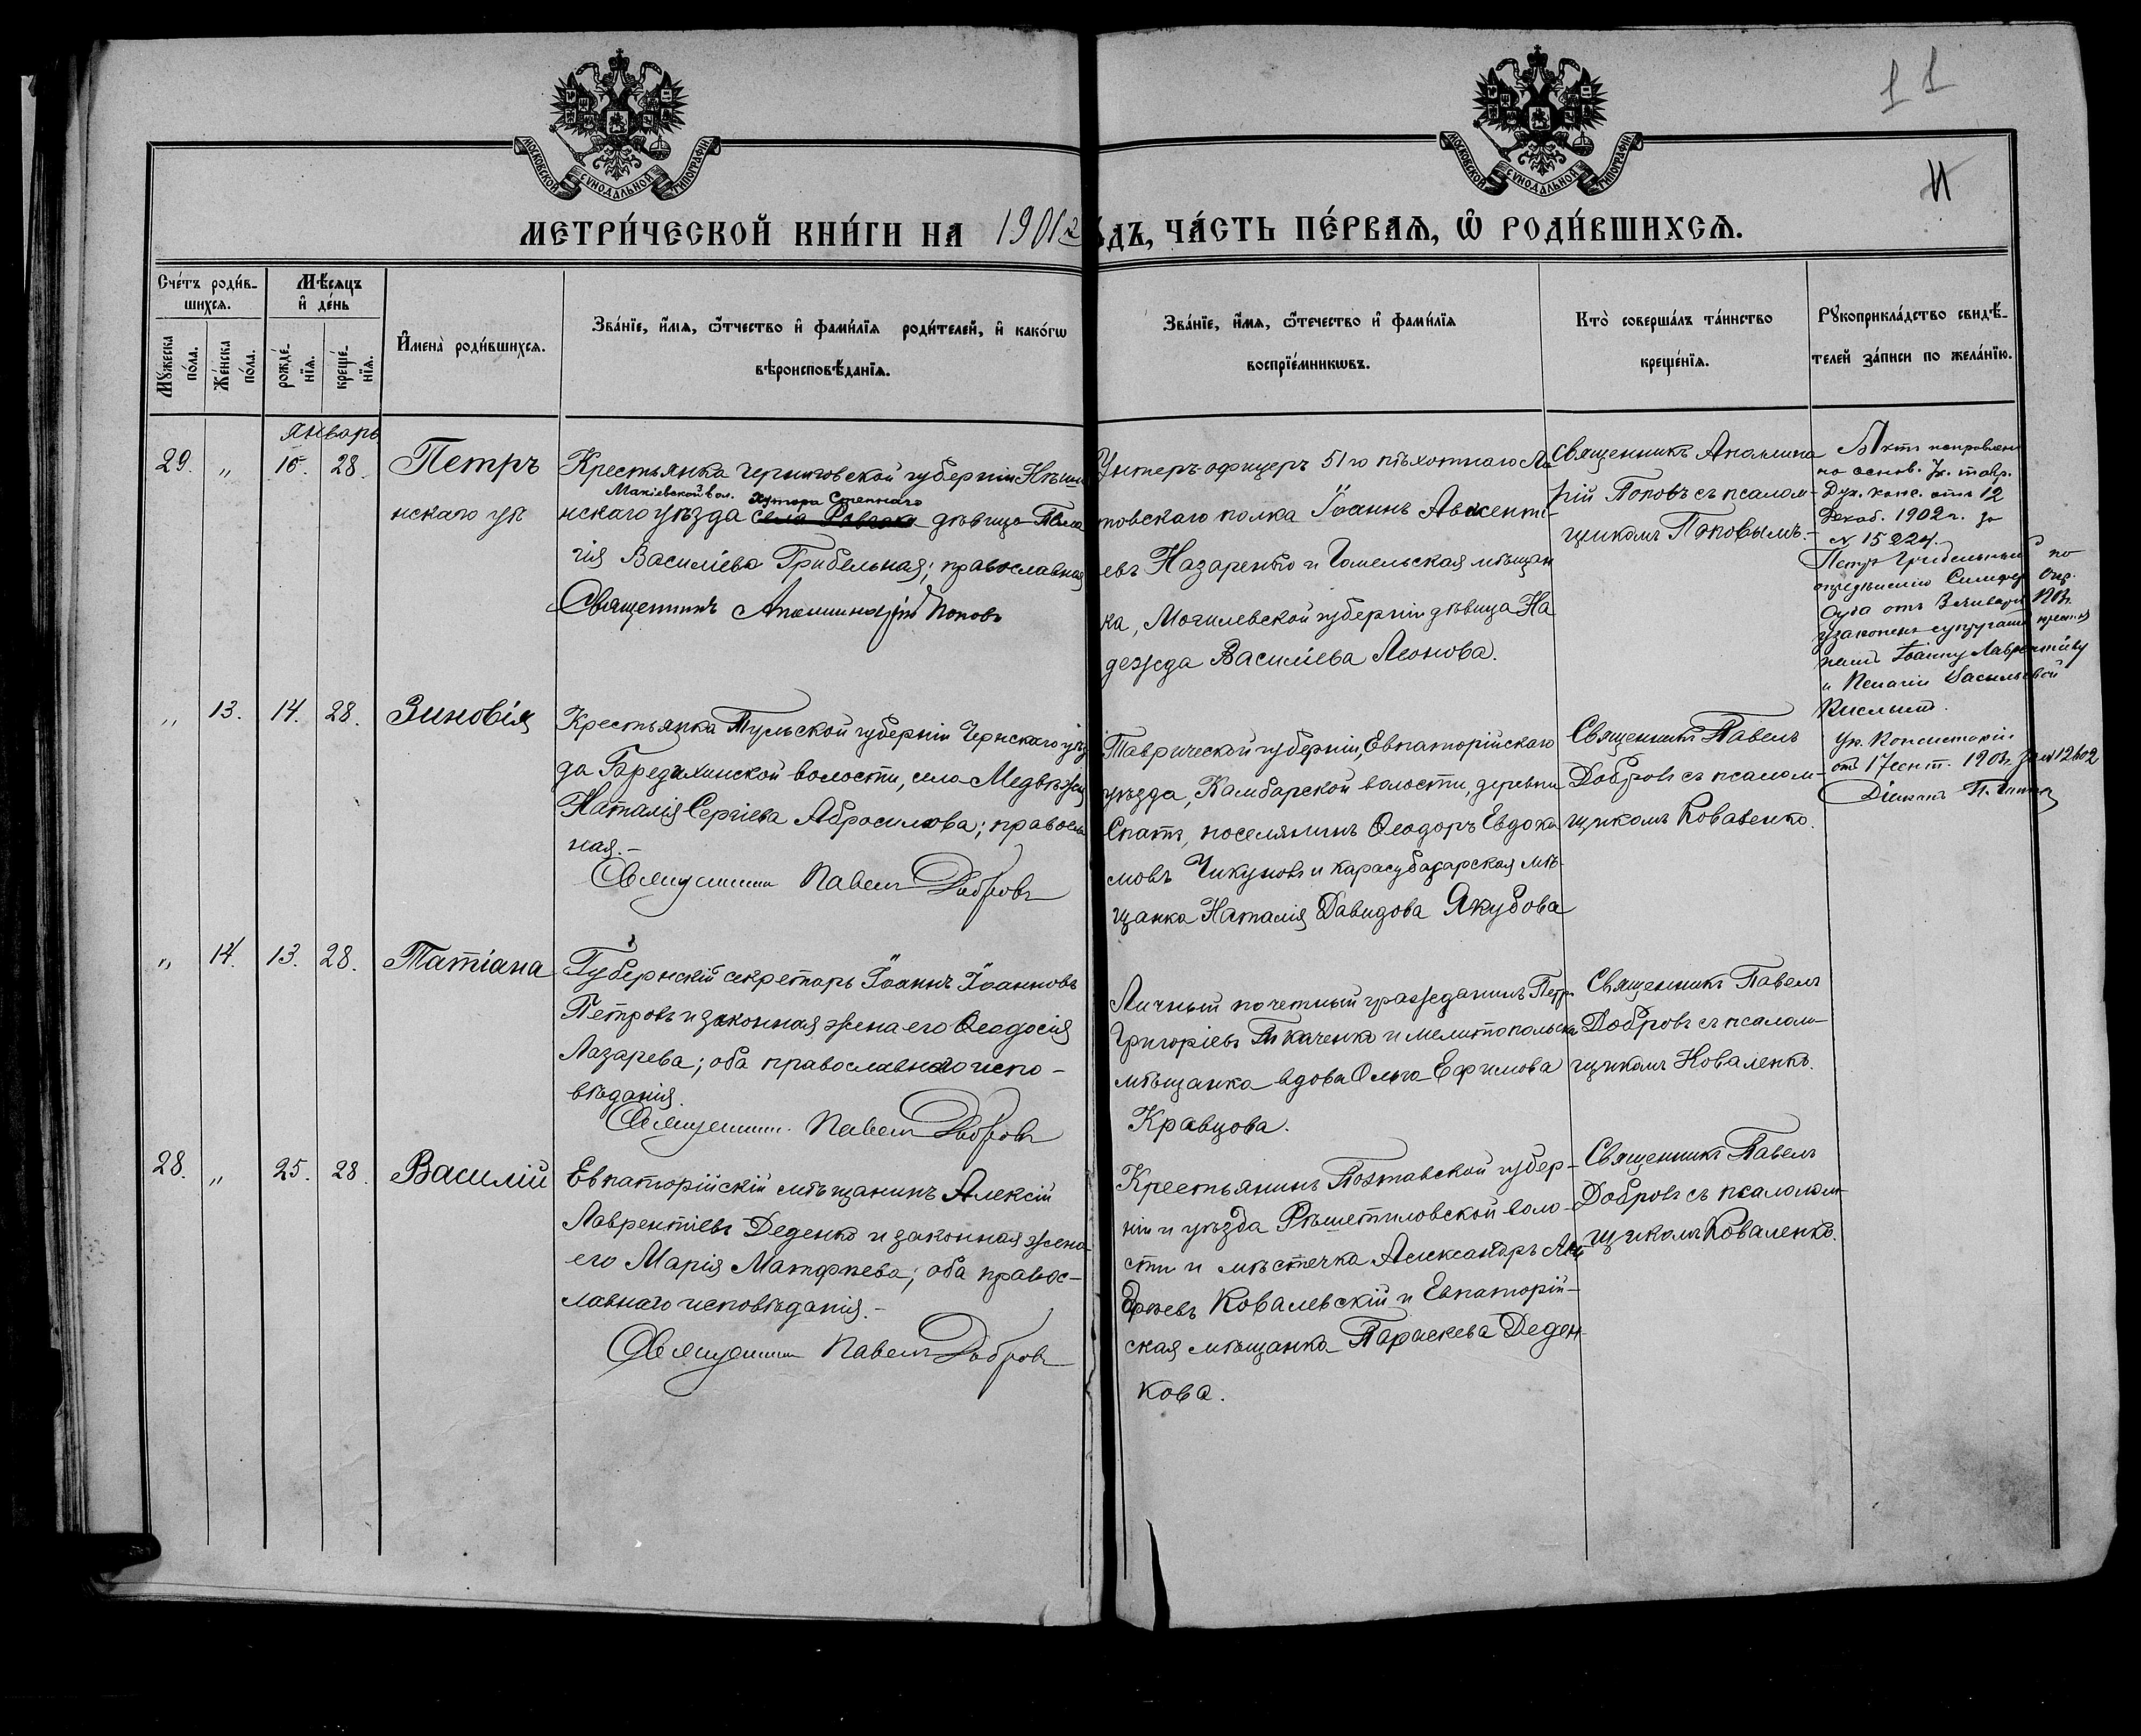 11
МОСКОВСКОЙ СУНОДАЛЬНОЙ ТИПОГРАФІИ.
МОСКОВСКОЙ СУНОДАЛЬНОЙ ТИПОГРАФІИ.
МЕТРИ́ЧЕСКОЙ КНИ́ГИ НА 1901 ГО́ДЪ, ЧА́СТЬ ПЕ́РВАѦ, Ѡ҆ РОДИ́ВШИХСѦ.
Сче́тъ роди́в-
шихсѧ.
Мѣ́сѧцъ
и҆ де́нь
Мꙋ́жеска
по́ла.
Же́нска
по́ла.
рожде́-
нїѧ.
креще́-
нїѧ.
И҆мена̀ роди́вшихсѧ.
Зва́нїе, и҆́мѧ, ѻ҆́тчество и҆ фами́лїѧ роди́телей, и҆ како́гѡ
вѣроисповѣ́данїѧ.
Зва́нїе, и҆́мѧ, ѻ҆́течество и҆ фами́лїѧ
воспрїе́мникѡвъ.
Кто̀ соверша́лъ та́инство
креще́нїѧ.
Рꙋкоприкла́дство свидѣ́-
телей за́писи по жела́нїю.
январь
29. „ 16. 28. Петръ
Крестьянка Черниговской губерніи Нѣжи
нскаго уѣзда
Макіевской вол. хутора Степнаго
села дѣвица Пела
гія Василіева Грибельная; православная
Священникъ Аполлинарій Поповъ
Унтеръ-офицеръ 51го пѣхотнаго Ли
товскаго полка Іоаннъ Авксенті-
евъ Назаренко и Гомельская мѣщан
ка, Могилевской губерніи дѣвица На
дежда Василіева Леонова.
Священникъ Аполлина
рій Поповъ съ псалом-
щикомъ Поповымъ.-
Актъ исправленъ
на основ. Ук. тавр.
Дух. конс. отъ 12
Декаб. 1902 г. за
№ 15224.
Петръ Грибельный по
опредѣленію Симфер. Окр.
Суда отъ
узаконенъ супругами
Іоанну Лаврентіеву
и Пелагіи Васильевой
Кислымъ.
Ук. Консисторіи
отъ 17 сент. за № 12602
„ 13. 14. 28. Зиновія
Крестьянка Тульской губерніи Чернскаго уѣз
да Бредихинской волости, села Медвѣжья
Наталія Сергіева Абросимова; правосла
ная.-
Священникъ Павелъ Добровъ
Таврической губерніи, Евпаторійскаго
уѣзда, Камбарской волости, деревни
Спатъ, поселянинъ Ѳеодоръ Евдоки
мовъ Чикуновъ и карасубазарская мѣ-
щанка Наталія Давидова Якубова
Священникъ Павелъ
Добровъ съ псалом-
щикомъ Коваленко.
„ 14. 13. 28. Татіана
Губернскій секретарь Іоаннъ Іоанновъ
Петровъ и законная жена его Ѳеодосія
Лазарева; оба православнаго испо-
вѣданія.
Священник. Павелъ Добровъ
Личный почетный гражданинъ Петръ
Григоріевъ Ткаченко и мелитопольска
мѣщанка вдова Ольга Ефимова
Кравцова.
Священникъ Павелъ
Добровъ съ псалом-
щикомъ Коваленко.
28. „ 25. 28. Василій
Евпаторійскій мѣщанинъ Алексій
Лаврентіевъ Деденко и законная жена
его Марія Матфѣева; оба правос-
лавнаго исповѣданія.-
Священникъ Павелъ Добровъ
Крестьянинъ Полтавской губер-
ніи и уѣзда Рѣшетиловской воло-
сти и мѣстечка Александръ Ан
дреевъ Ковалевскій и Евпаторій-
ская мѣщанка Параскева Деден-
кова.
Священникъ Павелъ
Добровъ съ псаломом-
щикомъ Коваленко.